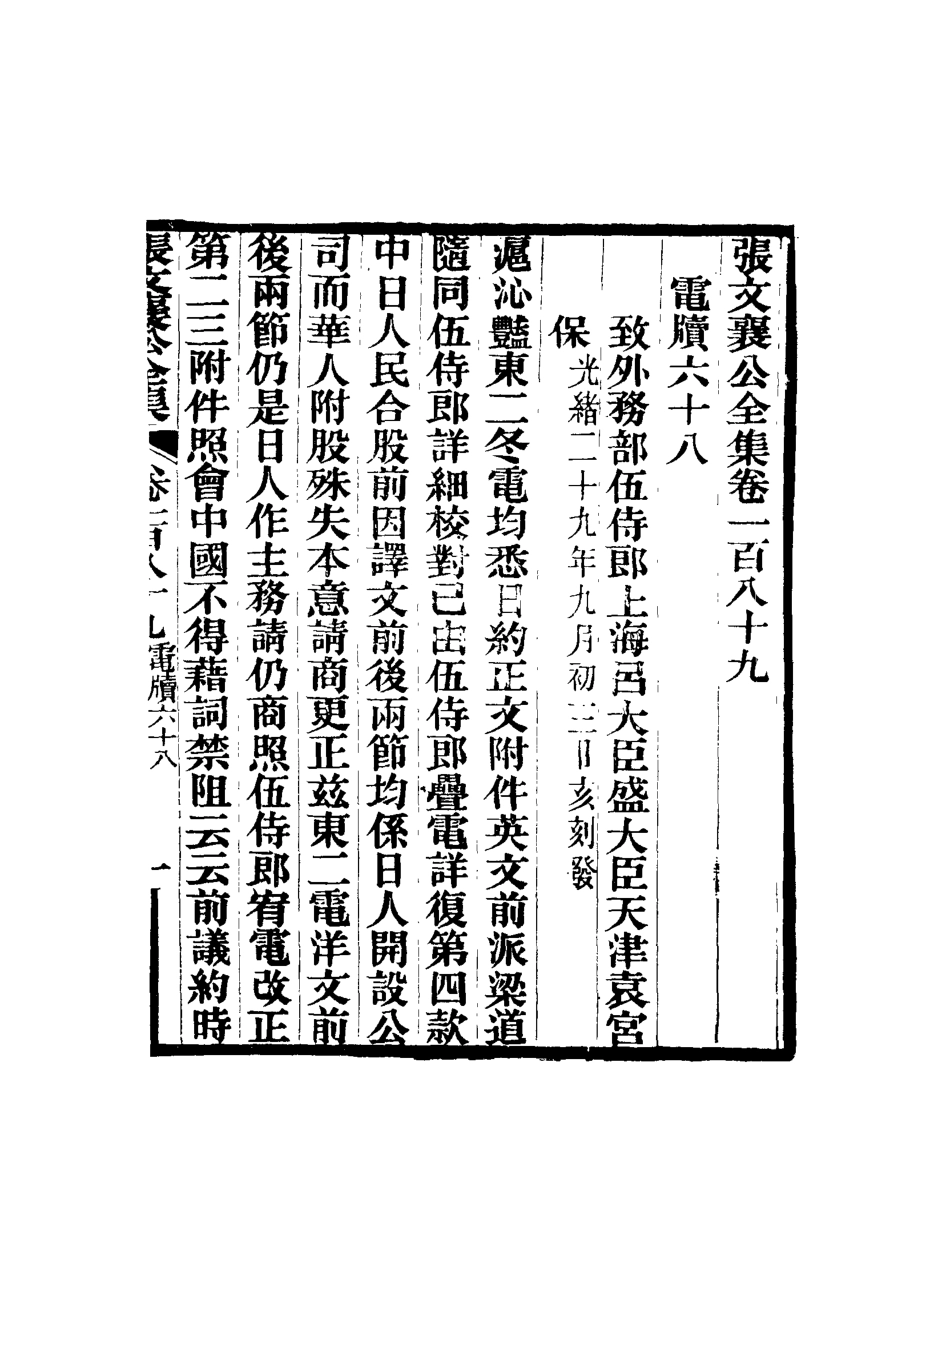 張文襄公全集卷一百八十九
電牘六十八
致外務部伍侍郎上海呂大臣盛大臣天津袁宮
保光緒二十九年九月初三日亥刻發
滬沁豔東二冬電均悉日約正文附件英文前派梁道
隨同伍侍郎詳細校對已由伍侍郎疊電詳復第四款
中日人民合股前因譯文前後兩節均係日人開設公
司而華人附股殊失本意請商更正茲東二電洋文前
後兩節仍是日人作主務請仍商照伍侍郎宥電改正
第二三附件照會中國不得藉詞禁阻云云前議約時
張文襄公全集 卷一百八十九 電牘六十八 一